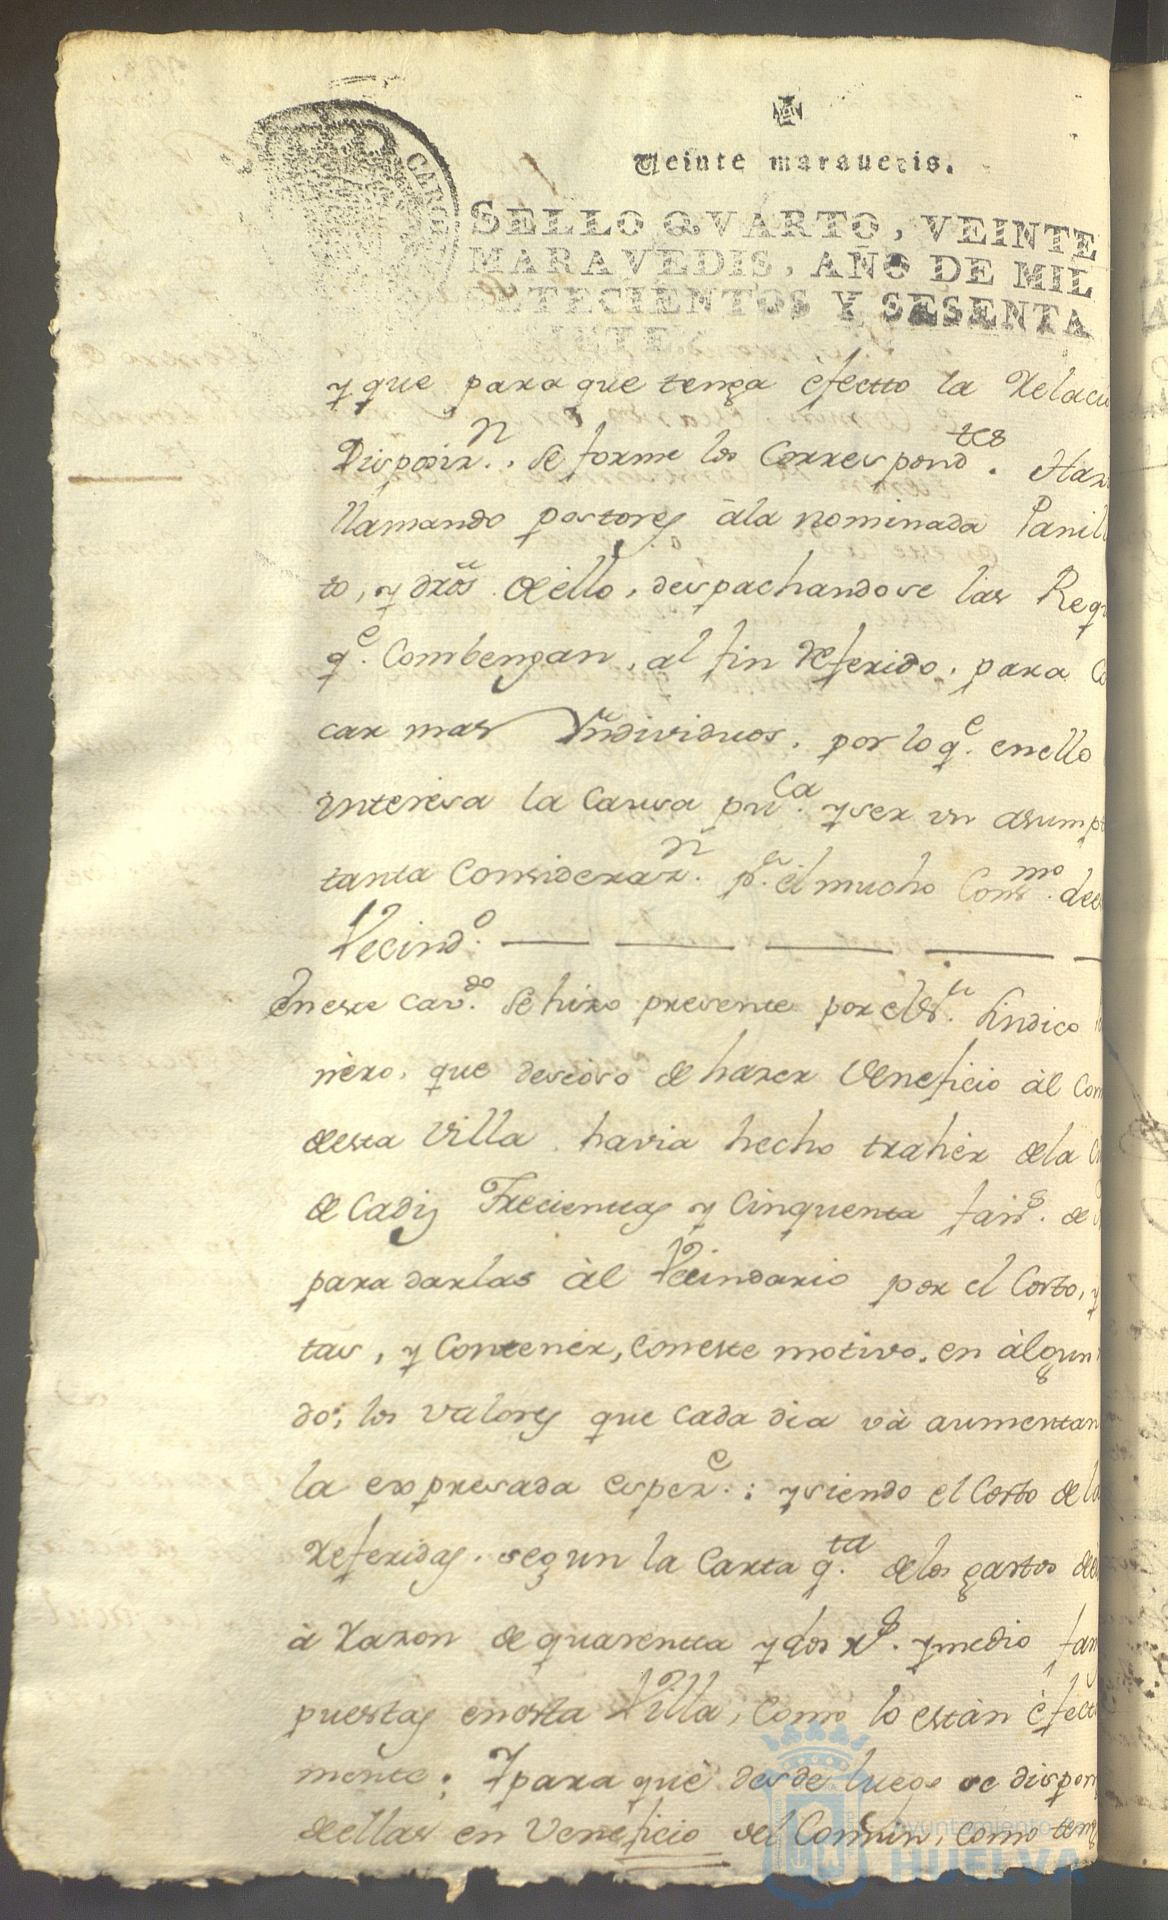 Veinte marauedis.
SELLO QVARTO, VEINTE
MARAVEDIS, AÑO DE MIL
SETECIENTOS Y SESENTA
SIETE.
y que para que tenga èfectto la Relaci
Disposiz.n, se forme los Correspond.tes Hax
llamando postores àla nominada Panill
to, y dros. de èllo, despachandose las Req
q.e Combengan, al fin Referido, para Co
car mas Yndividuos, por lo q.e enello
interesa la Causa pu.ca y ser un asumpt
tanta Consideraz.n p.r èl mucho Cons.mo dees
Vecind.o
En este cav.do se hizo presente por èl S.r Sindico
nèro, que deseoso de hazer Veneficio àl Com
desta Villa havia hecho trahèr de la C
de Cadiz Trecientas y Cinquenta fan.s de
para darlas àl Vecindario por el Costo, y
tas, y Contenèr, coneste motivo, en àlgun
do; los valores que cada dia và aumentan
la expresada espez.e: y siendo el Costo de la
Referidas, segun la Carta q.ta de los gastos de
à Razon de quarenta y dos r.s y medio fan
puestas enesta Villa, como lo estàn èfect
mente; Y para què desde luego se dispon
deellas en Veneficio del Comùn, como teng
Ayuntamiento
HUELVA